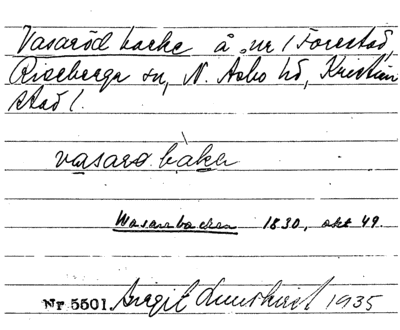 Vasaröd backe å nr 1 Forestad,
Riseberga sn, N. Åsbo hd, Kristian
stad l.
vasarø bàkɐ
Wasarebacken 1830, akt 49.
Nr 5501. Birgit 1935